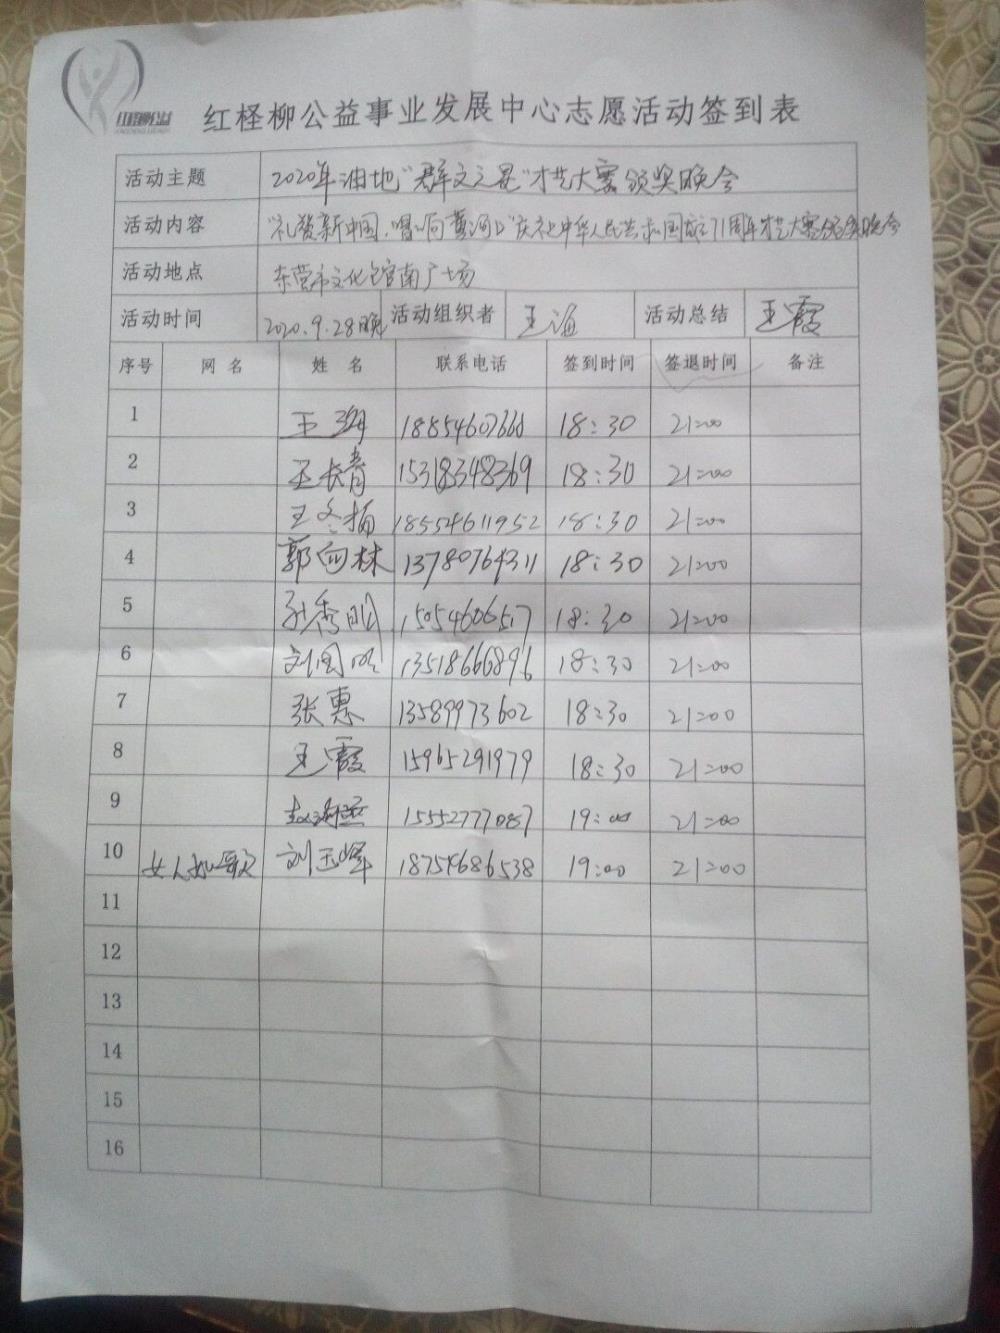 红柽柳公益
红柽柳公益事业发展中心志愿活动签到表
活动主题 2020年油地"群文之星"才艺大赛颁奖晚会
活动内容 "礼赞新中国,唱响黄河口"庆祝中华人民共和国成立71周年才艺大赛颁奖晚会
活动地点 东营市文化馆南广场
活动时间 2020.9.28晚 活动组织者 王海 活动总结 王霞
序号 网名 姓名 联系电话 签到时间 签退时间 备注
1 王海 18:30 21:00
2 王长青 15318348369 18:30 21:00
3 王冬梅 18554611952 18:30 21:00
4 郭向林 13780764311 18:30 21:00
5 孙秀明 15054606517 18:30 21:00
6 刘国明 13518666896 18:30 21:00
7 张惠 13589973602 18:30 21:00
8 王霞 15965291979 18:30 21:00
9 赵海燕 15552777087 19:00 21:00
10 女人如歌 刘玉峰 18754686538 19:00 21:00
11
12
13
14
15
16